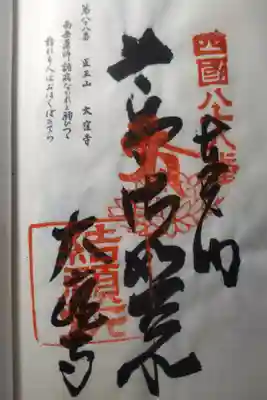 四國八十八番
奉納
薬師如来
大窪寺
結願所
第八十八番 医王山 大窪寺
南無薬師諸病なかれと願ひつゝ
詣れる人はおほくぼのてら